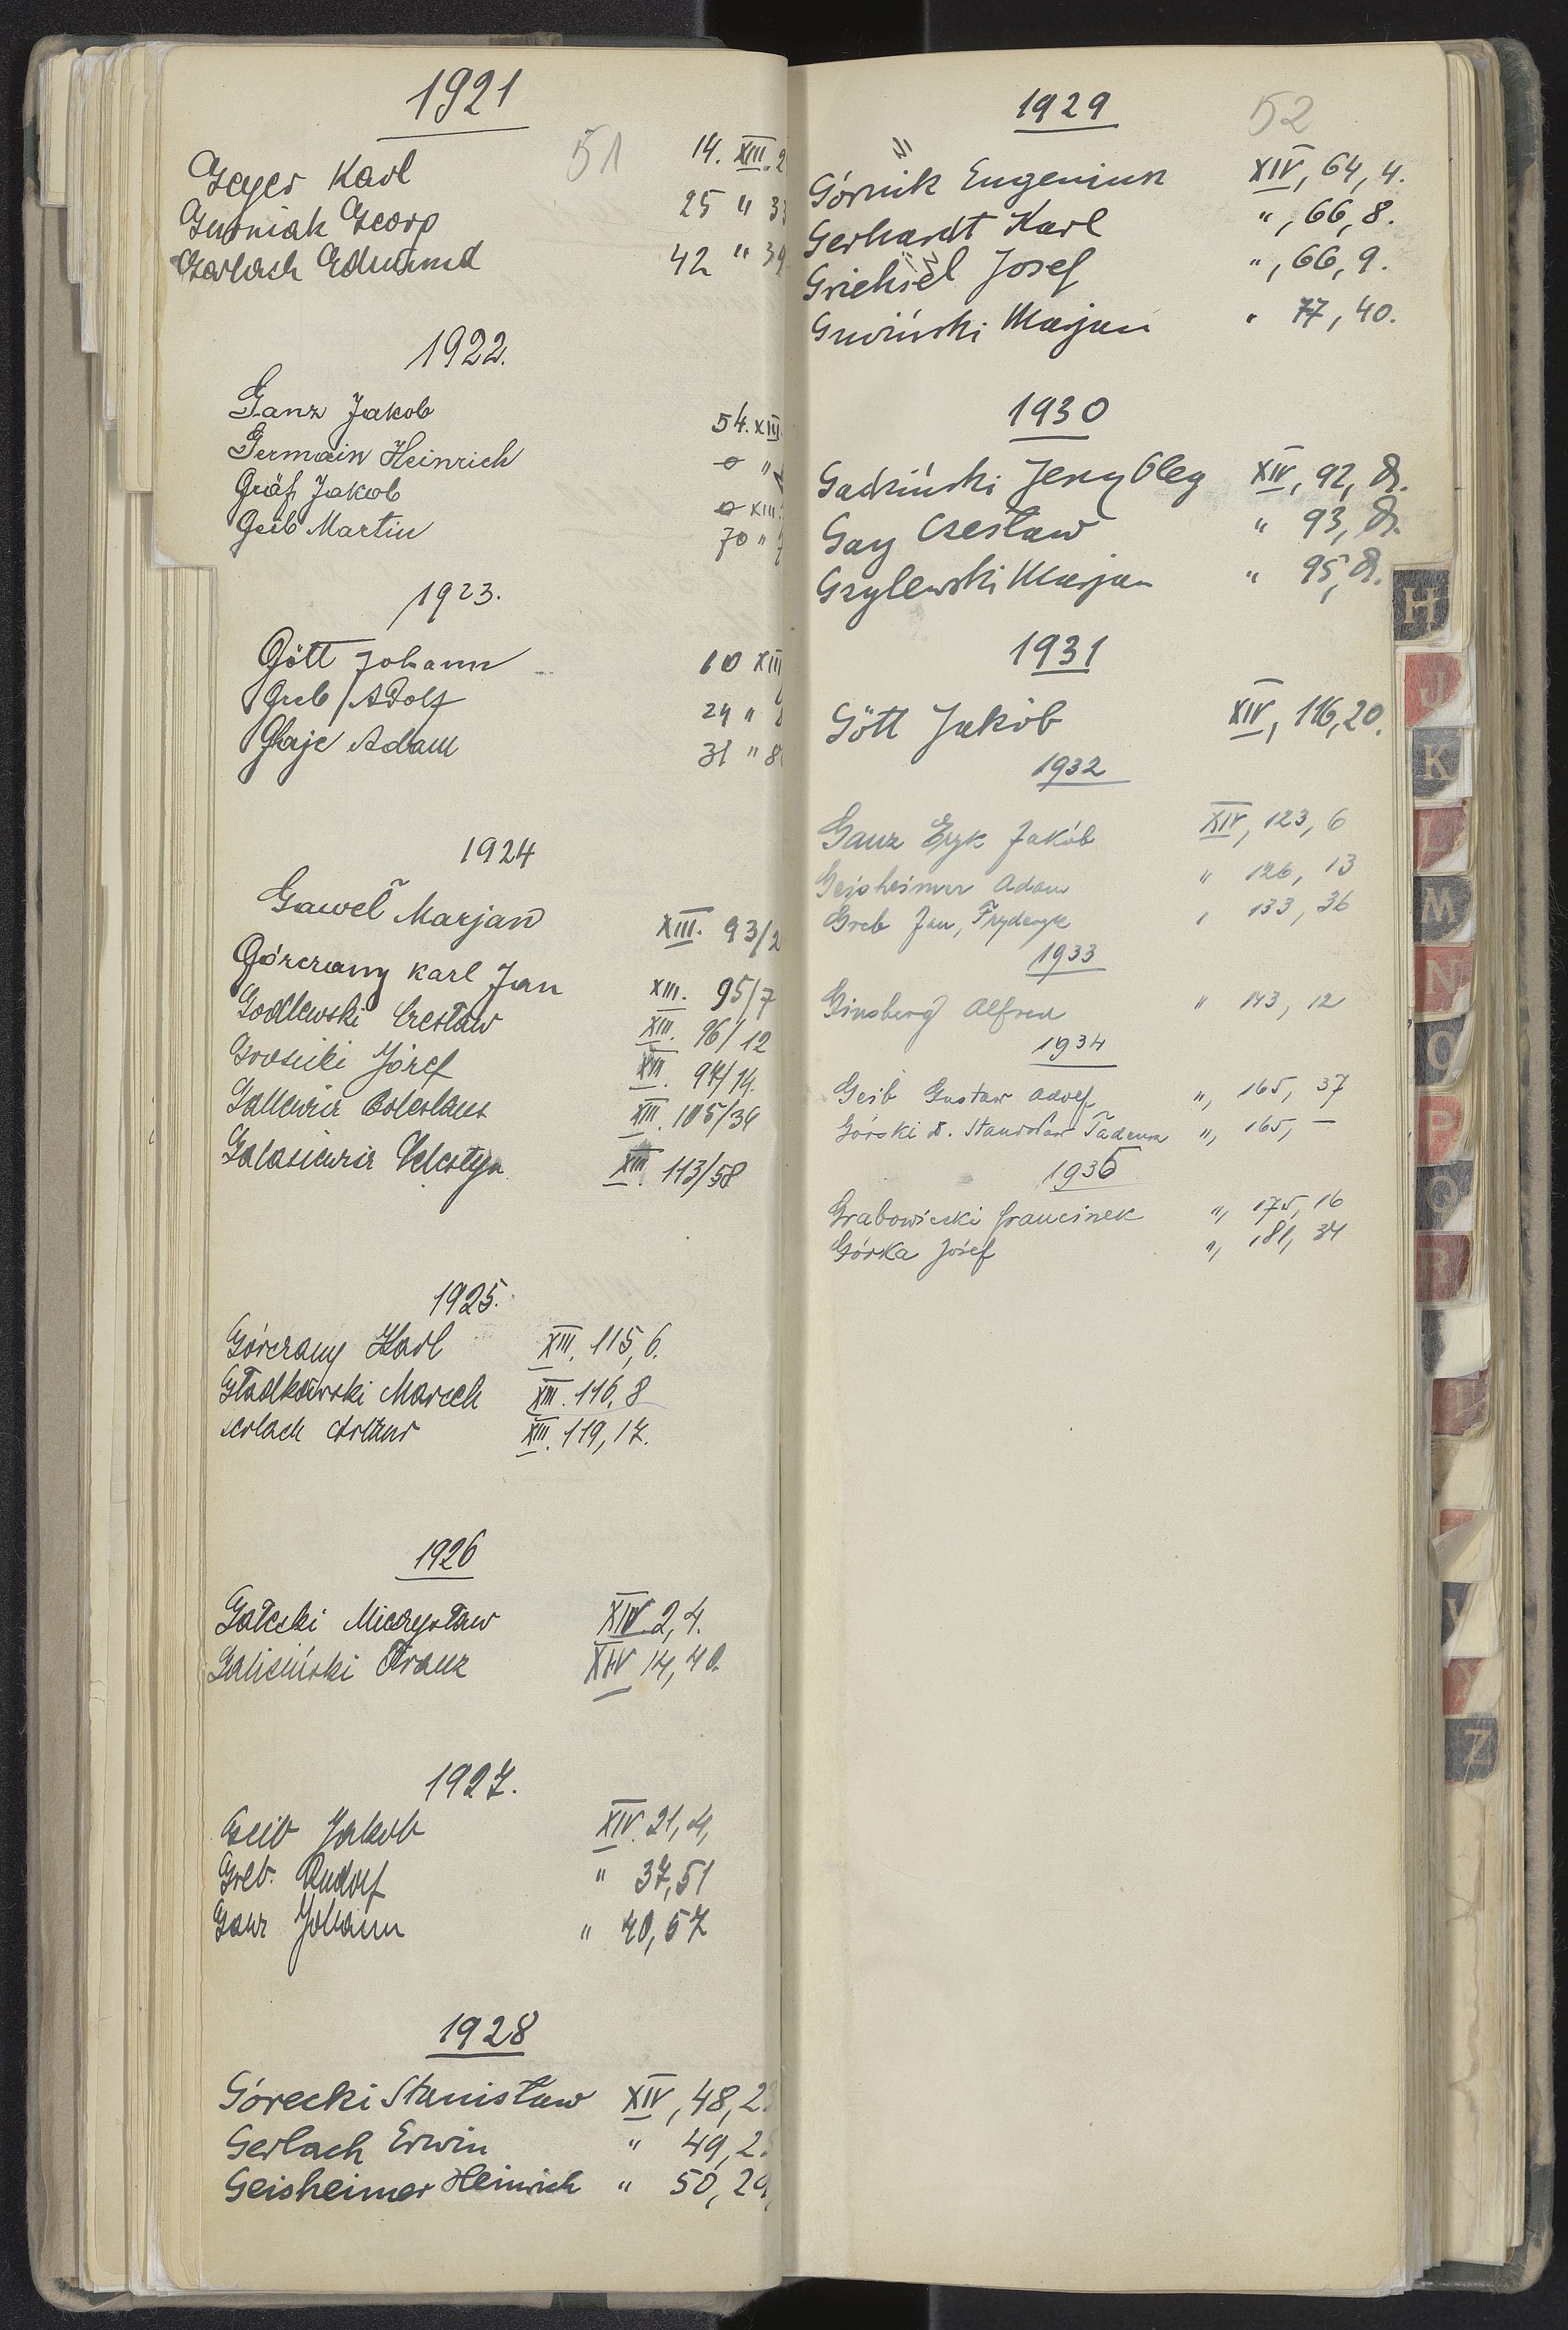 1921
51
Geyer Karl 14. XIII. 2
Gusniak Georg 25 " 33
Garlach Edmund 42 " 39
1922.
Ganz Jakob 54. XIII.
Germain Heinrich 0 "
Gräf Jakob 0 XIII.
Geib Martin 70 " 7
1923.
Gött Johann 10 XIII
Greb Adolf 24 " 8
Adam 31 " 8
1924
Gaweł Marjan XIII. 93/2
Górczany Karl Jan XIII. 95/7
Godlewski Czesław XIII. 96/12
Józef XIII. 97/14.
Boleslaus XIII. 105/34
Galasiewicz Celestyn XIII. 113/58
1925.
Górczany Karl XIII. 115, 6.
Gładkowski Marceli XIII. 116, 8
erlach Artur XIII. 119, 17.
1926
Gałecki Mieczysław XIV 2, 4.
Galiciński Franz XIV 14, 40.
1927.
Geib Jakob XIV. 21, 4,
Greb. Rudolf " 37, 51
Ganz Johann " 40, 57
1928
Górecki Stanisław XIV, 48, 2
Gerlach Erwin " 49, 2
Geisheimer Heinrich " 50, 29,
1929
52
Górnik Eugeniusz XIV, 64, 4.
Gerhardt Karl ", 66, 8.
Grieksel Josef ", 66, 9.
Marjan " 77, 40.
1930
Gadziński Jerzy Oleg XIV, 92,
Gay Czesław " 93,
Grylewski Marjan " 95,
1931
Gött Jakób XIV, 116, 20.
1932
Ganz Eryk Jakób XIV, 123, 6
Geisheimer Adam " 126, 13
Greb Jan, Fryderyk " 133, 36
1933
Ginsberg Alfred " 143, 12
1934
Geib Gustaw Adolf ", 165, 37
Górski D. Stanisław Tadeusz ", 165, —
1935
Grabowiecki Franciszek ", 175, 16
Górka Józef ", 181, 34
H
J
K
L
M
N
O
P
Q
R
Z